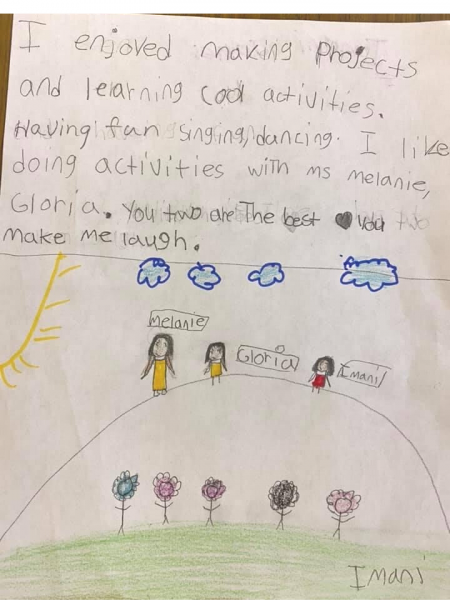 I enjoyed making Projects
and learning cool activities.
Having fun singing, dancing. I like
doing activities with ms melanie,
Gloria. You two are The best you
make me laugh.
Melanie
Gloria
Imani
Imani